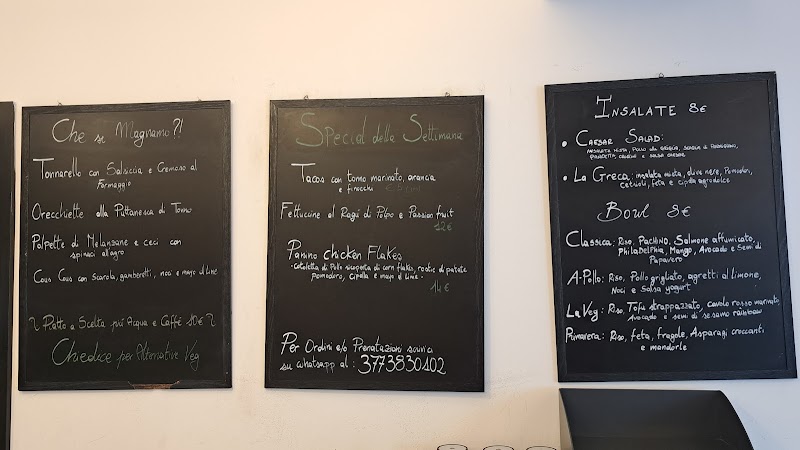 Che se Magnamo?!
Tonnarello con Salsiccia e Cremoso al
Formaggio
Orecchiette alla Puttanesca di Tonno
Polpette di Melanzane e ceci con
spinaci all'agro
Cous Cous con Scarola, gamberetti, noci e mayo di lime
Piatto a Scelta più Acqua e Caffè 10€
Chiedice per Alternative Veg
Special della Settimana
Tacos con tonno marinato, arancia
e finocchi
Fettuccine al Ragù di Polpo e Passion fruit
12€
Panino chicken Flakes
cotoletta di Pollo ricoperta di corn flakes, rostie di patate
pomodoro, cipolla e mayo di lime
14€
Per Ordini e/o Prenotazioni scrivici
su whatsapp al: 3773830102
Insalate 8€
• Caesar Salad:
insalata mista, Pollo alla griglia, scaglie di Parmigiano,
pancetta, crostini e salsa caesar
• La Greca: insalata mista, olive nere, Pomodori,
cetrioli, feta e cipolla agrodolce
Bowl 8€
Classica: Riso, Pachino, Salmone affumicato,
Philadelphia, Mango, Avocado e Semi di
Papavero
A-Pollo: Riso, Pollo grigliato, agretti al limone,
Noci e Salsa yogurt
La Veg: Riso, Tofu strappazzato, cavolo rosso marinato
Avocado e semi di sesamo rainbow
Primavera: Riso, feta, fragole, Asparagi croccanti
e mandorle